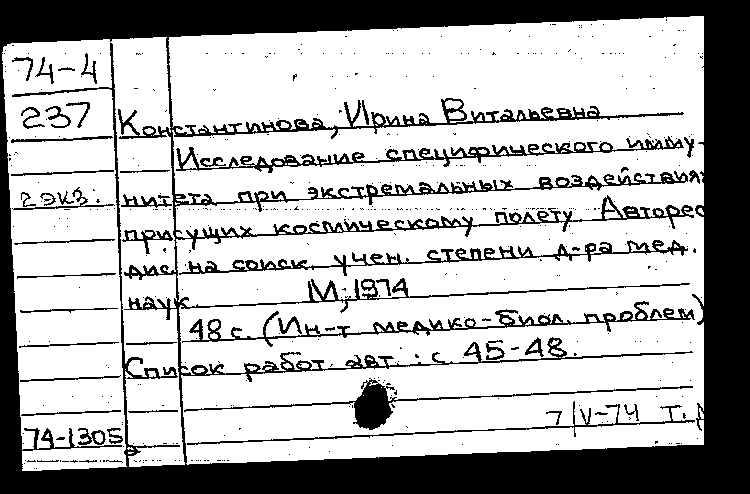 74-4
237
Константинова, Ирина Витальевна
Исследование специфического имму-
2 экз. нитета при экстремальных воздействиях
присущих космическому полету. Авторе
дис. на соиск. учен. степени д-ра мед.
наук. М., 1974
48 с. (Ин-т медико-биол. проблем)
Список работ авт.: с. 45-48.
7/V-74 Т.
74-1305